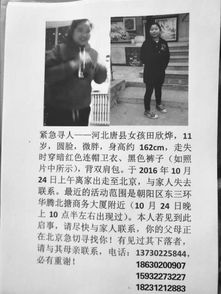 紧急寻人——河北唐县女孩田欣烨，11
岁，圆脸，微胖，身高约 162cm，走失
时穿暗红色连帽卫衣、黑色裤子（如照
片中所示），背双肩包。于 2016 年 10 月
24 日上午离家出走至北京，与家人失去
联系。最近的活动范围是朝阳区东三环
华腾北搪商务大厦附近（10 月 24 日晚
上 10 点半左右出现过）。本人若见到此
启事，请尽快与家人联系，你的父母正
在北京急切寻找你！有见过其下落者，
请与其母亲联系，电话：13730225844，
18630200907
15932273227
18231212883
必有重谢！